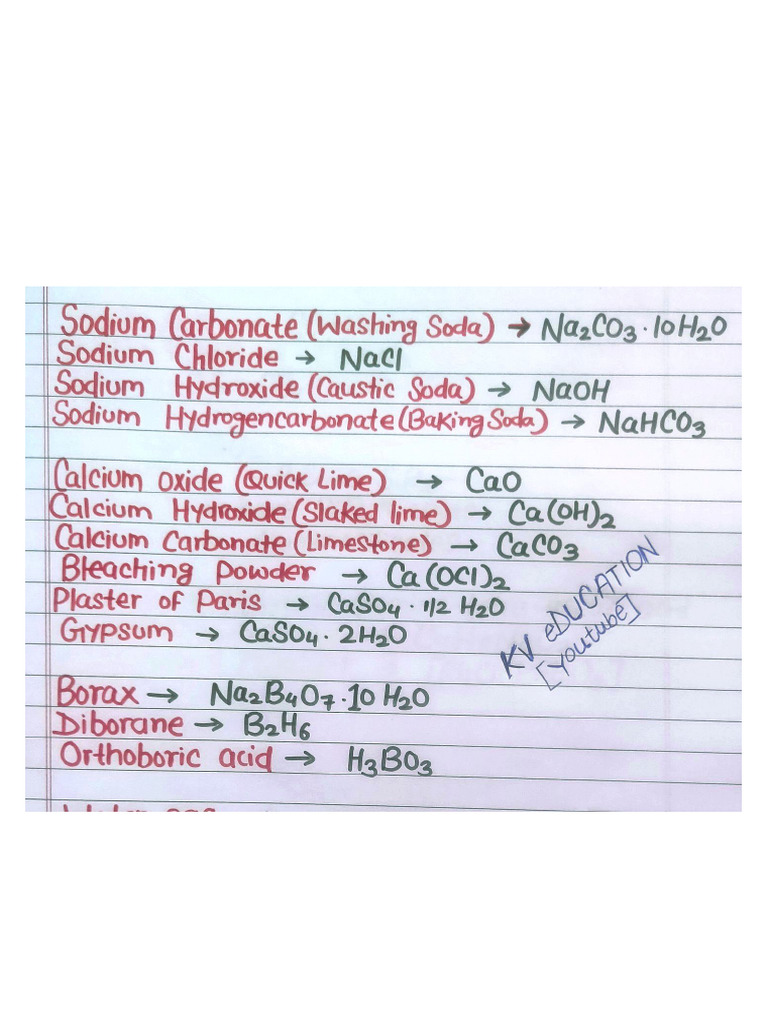 Sodium Carbonate (Washing Soda) → Na₂CO₃·10H₂O
Sodium Chloride → NaCl
Sodium Hydroxide (Caustic Soda) → NaOH
Sodium Hydrogencarbonate (Baking Soda) → NaHCO₃
Calcium Oxide (Quick Lime) → CaO
Calcium Hydroxide (Slaked lime) → Ca(OH)₂
Calcium Carbonate (Limestone) → CaCO₃
Bleaching Powder → Ca(OCl)₂
Plaster of Paris → CaSO₄·1/2 H₂O
Gypsum → CaSO₄·2H₂O
KV eDUCATION
[Youtube]
Borax → Na₂B₄O₇·10H₂O
Diborane → B₂H₆
Orthoboric acid → H₃BO₃